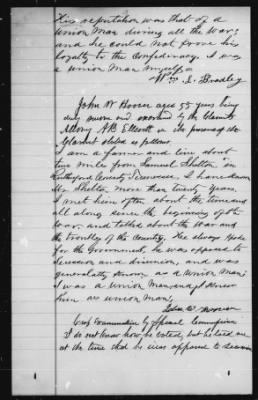 His reputation was that of a
Union Man during all the War;
and he could not prove his
loyalty to the Confederacy. I was
a union man myself.
Wm. L. Bradley
John W Hoover aged 55 years being
duly sworn and examined by the Claimants
Attorny A B Ellcott in the presence of the
Claimant stated as follows
I am a farmer and live about
two miles from Samuel Shelton in
Rutherford County Tennessee, I have known
Mr Shelton more than twenty years,
I met him often about the time and
all along since the beginning of the
war, and talked about the War and
the troubles of the Country, He always spoke
for the Government, he was opposed to
Secession and disunion, and was
generally known as a Union man;
I was a Union man and I knew
him as union man;
John W Hoover
Cross Examination by Special Commissioner
I do not know how he voted, but he told me
at the time that he was opposed to Secession